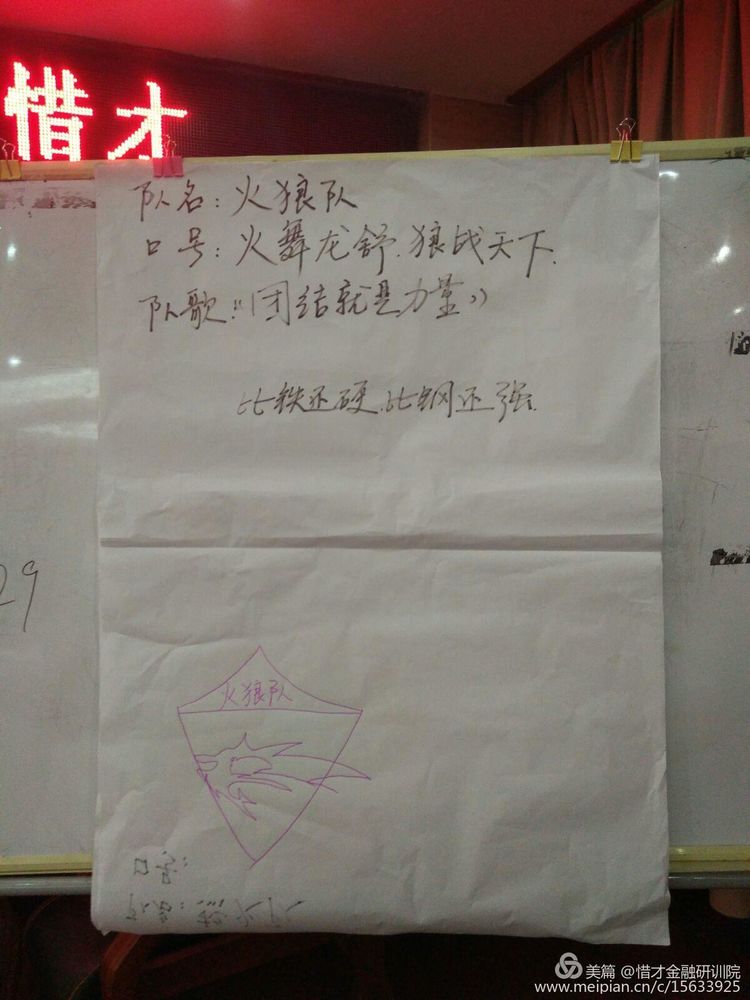 惜才
队名：火狼队
口号：火舞龙舒.狼战天下.
队歌：《团结就是力量》
比铁还硬.比钢还强.
29
火狼队
美篇 @惜才金融研训院
www.meipian.cn/c/15633925